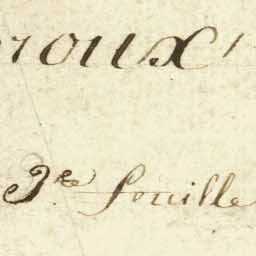 roux
3e feuille